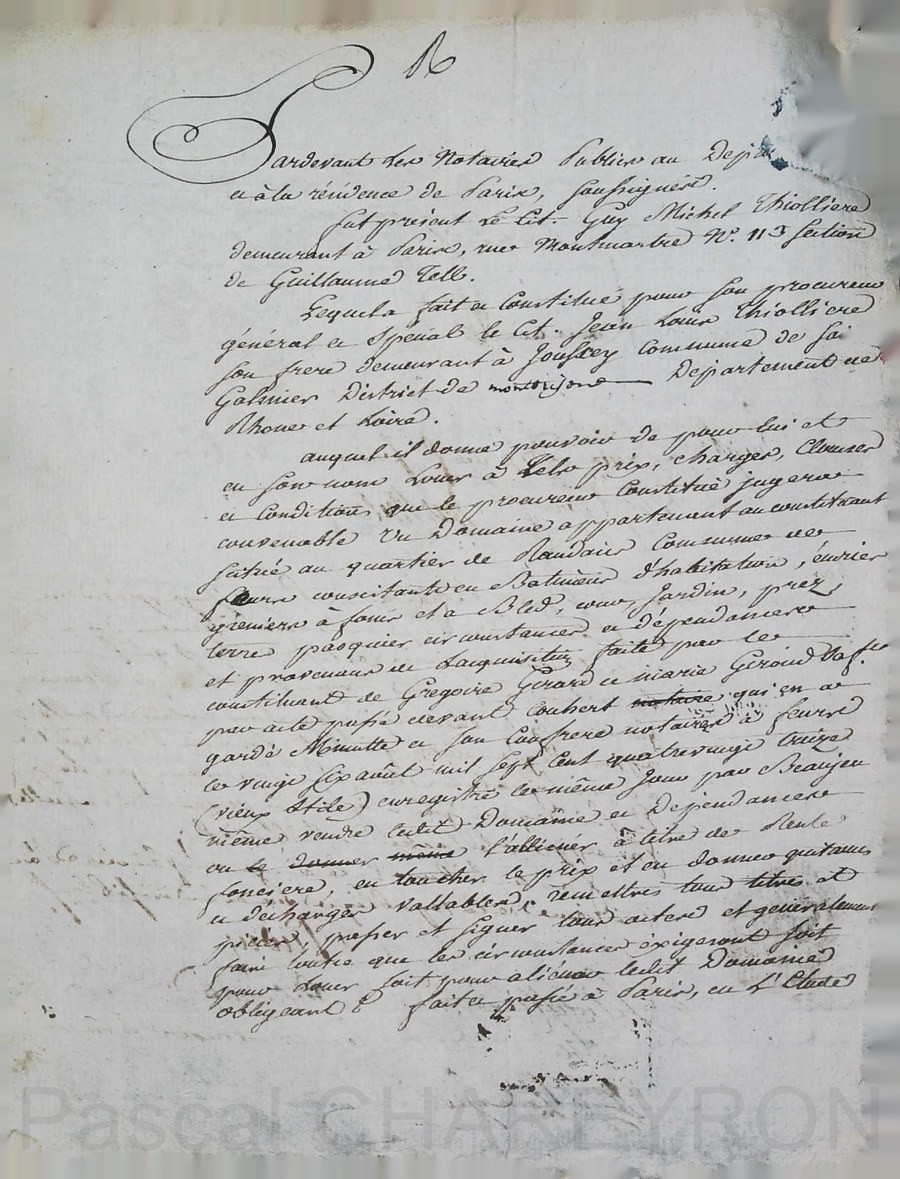 R
Pardevant Les Notaires Publics au Dep
et à la résidence de Paris, Soussignérs.
fut présent Le Cit. Guy Michel Thiolliere
demeurant à Paris, rue Montmartre N.° 113 Section
de Guillaume Tell.
Lequel a fait et Constitué pour son procureur
général et Spécial le Cit. Jean Louis Thiolliere
son frere demeurant à Jousrey Commune de
Galmier District de Département de
Rhone et Loire.
auquel il donne pouvoir de pour lui et
en son nom Louer à Tels prix, charges, Clauses
et Conditions que le procureur Constitué jugera
convenable un Domaine appartenant au constituant
scitué au quartier de Randais Commune de
feurs consistant en Batiments d'habitation, écurier
greniers à foins et a Bled, cour, Jardin, prez,
terre pasquier circonstances et dépendances
et provenant de Lacquisition faite par le
constituant de Gregoire Girard et marie Giroud Sa f.e
par acte passé devant Couhert notaire qui en a
gardé Minutte et son Confrere notaires à feurs
le vingt six août mil sept Cent quatrevingt treize
(vieux Stile) enregistré le même Jour par Beaujeu
même vendre ledit Domaine et Dépendances
ou le donner même l'alliéner à titre de Rente
fonciere, en toucher le prix et en donner quitances
et décharges vallables, remettres tous titres et
pièces, passer et Signer tous actes et generalement
faire tout ce que les circonstances éxigeront soit
pour Louer soit pour aliéner ledit Domaine
obligeant & fait et passé à Paris, en L'Etude
Pascal CHAREYRON